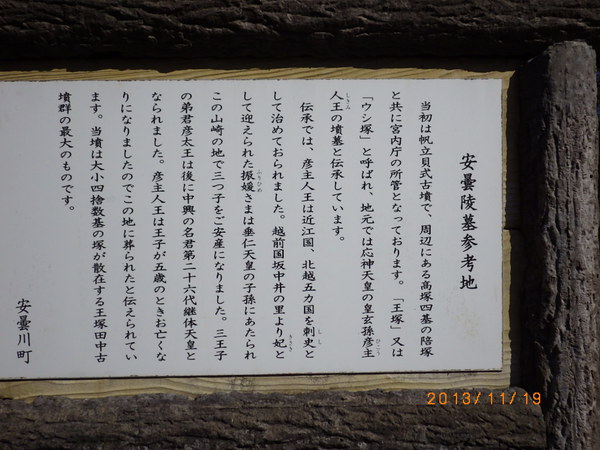 安曇陵墓参考地
当初は帆立貝式古墳で、周辺にある高塚四基の陪塚
と共に宮内庁の所管となっております。「王塚」又は
「ウシ塚」と呼ばれ、地元では応神天皇の皇玄孫彦主
人王の墳墓と伝承しています。
伝承では、彦主人王は近江国、北越五カ国を刺史と
して治めておられました。越前国坂中井の里より妃と
して迎えられた振媛さまは垂仁天皇の子孫にあたられ
この山崎の地で三つ子をご安産になりました。三王子
の弟君彦太王は後に中興の名君第二十六代継体天皇と
なられました。彦主人王は王子が五歳のときお亡くな
りになりましたのでこの地に葬られたと伝えられてい
ます。当墳は大小四捨数基の塚が散在する王塚田中古
墳群の最大のものです。
安曇川町
2013/11/19